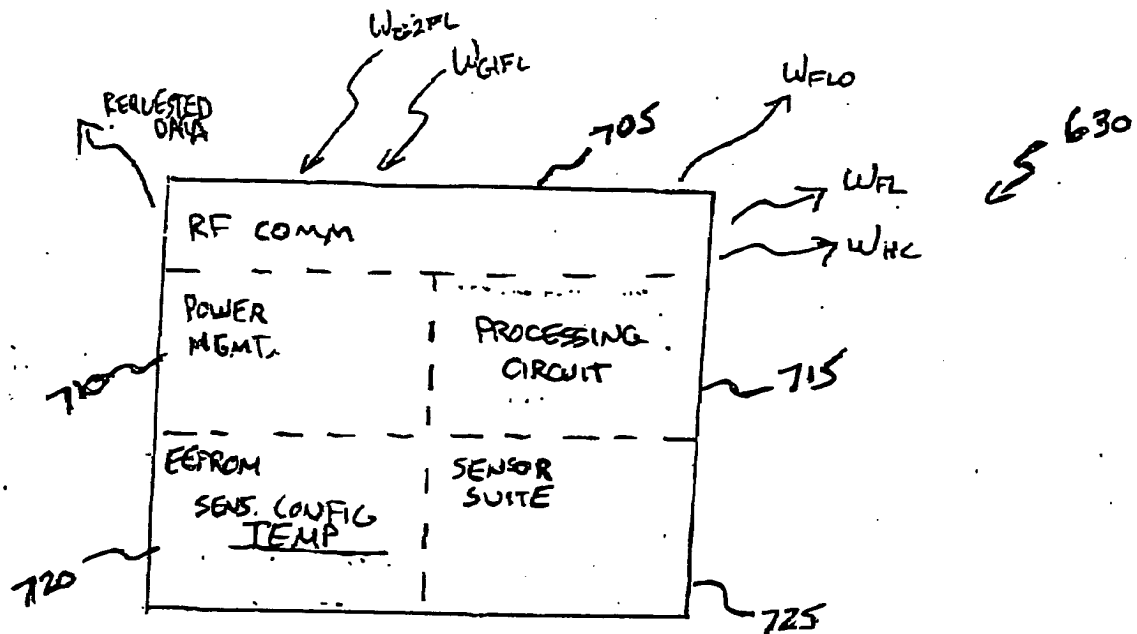 WG2FL
WG1FL
WFLO
REQUESTED
DATA
705
630
WFL
RF COMM
WHC
POWER
MGMT.
PROCESSING
CIRCUIT
710
715
EEPROM
SENSOR
SUITE
SENS. CONFIG
TEMP
720
725